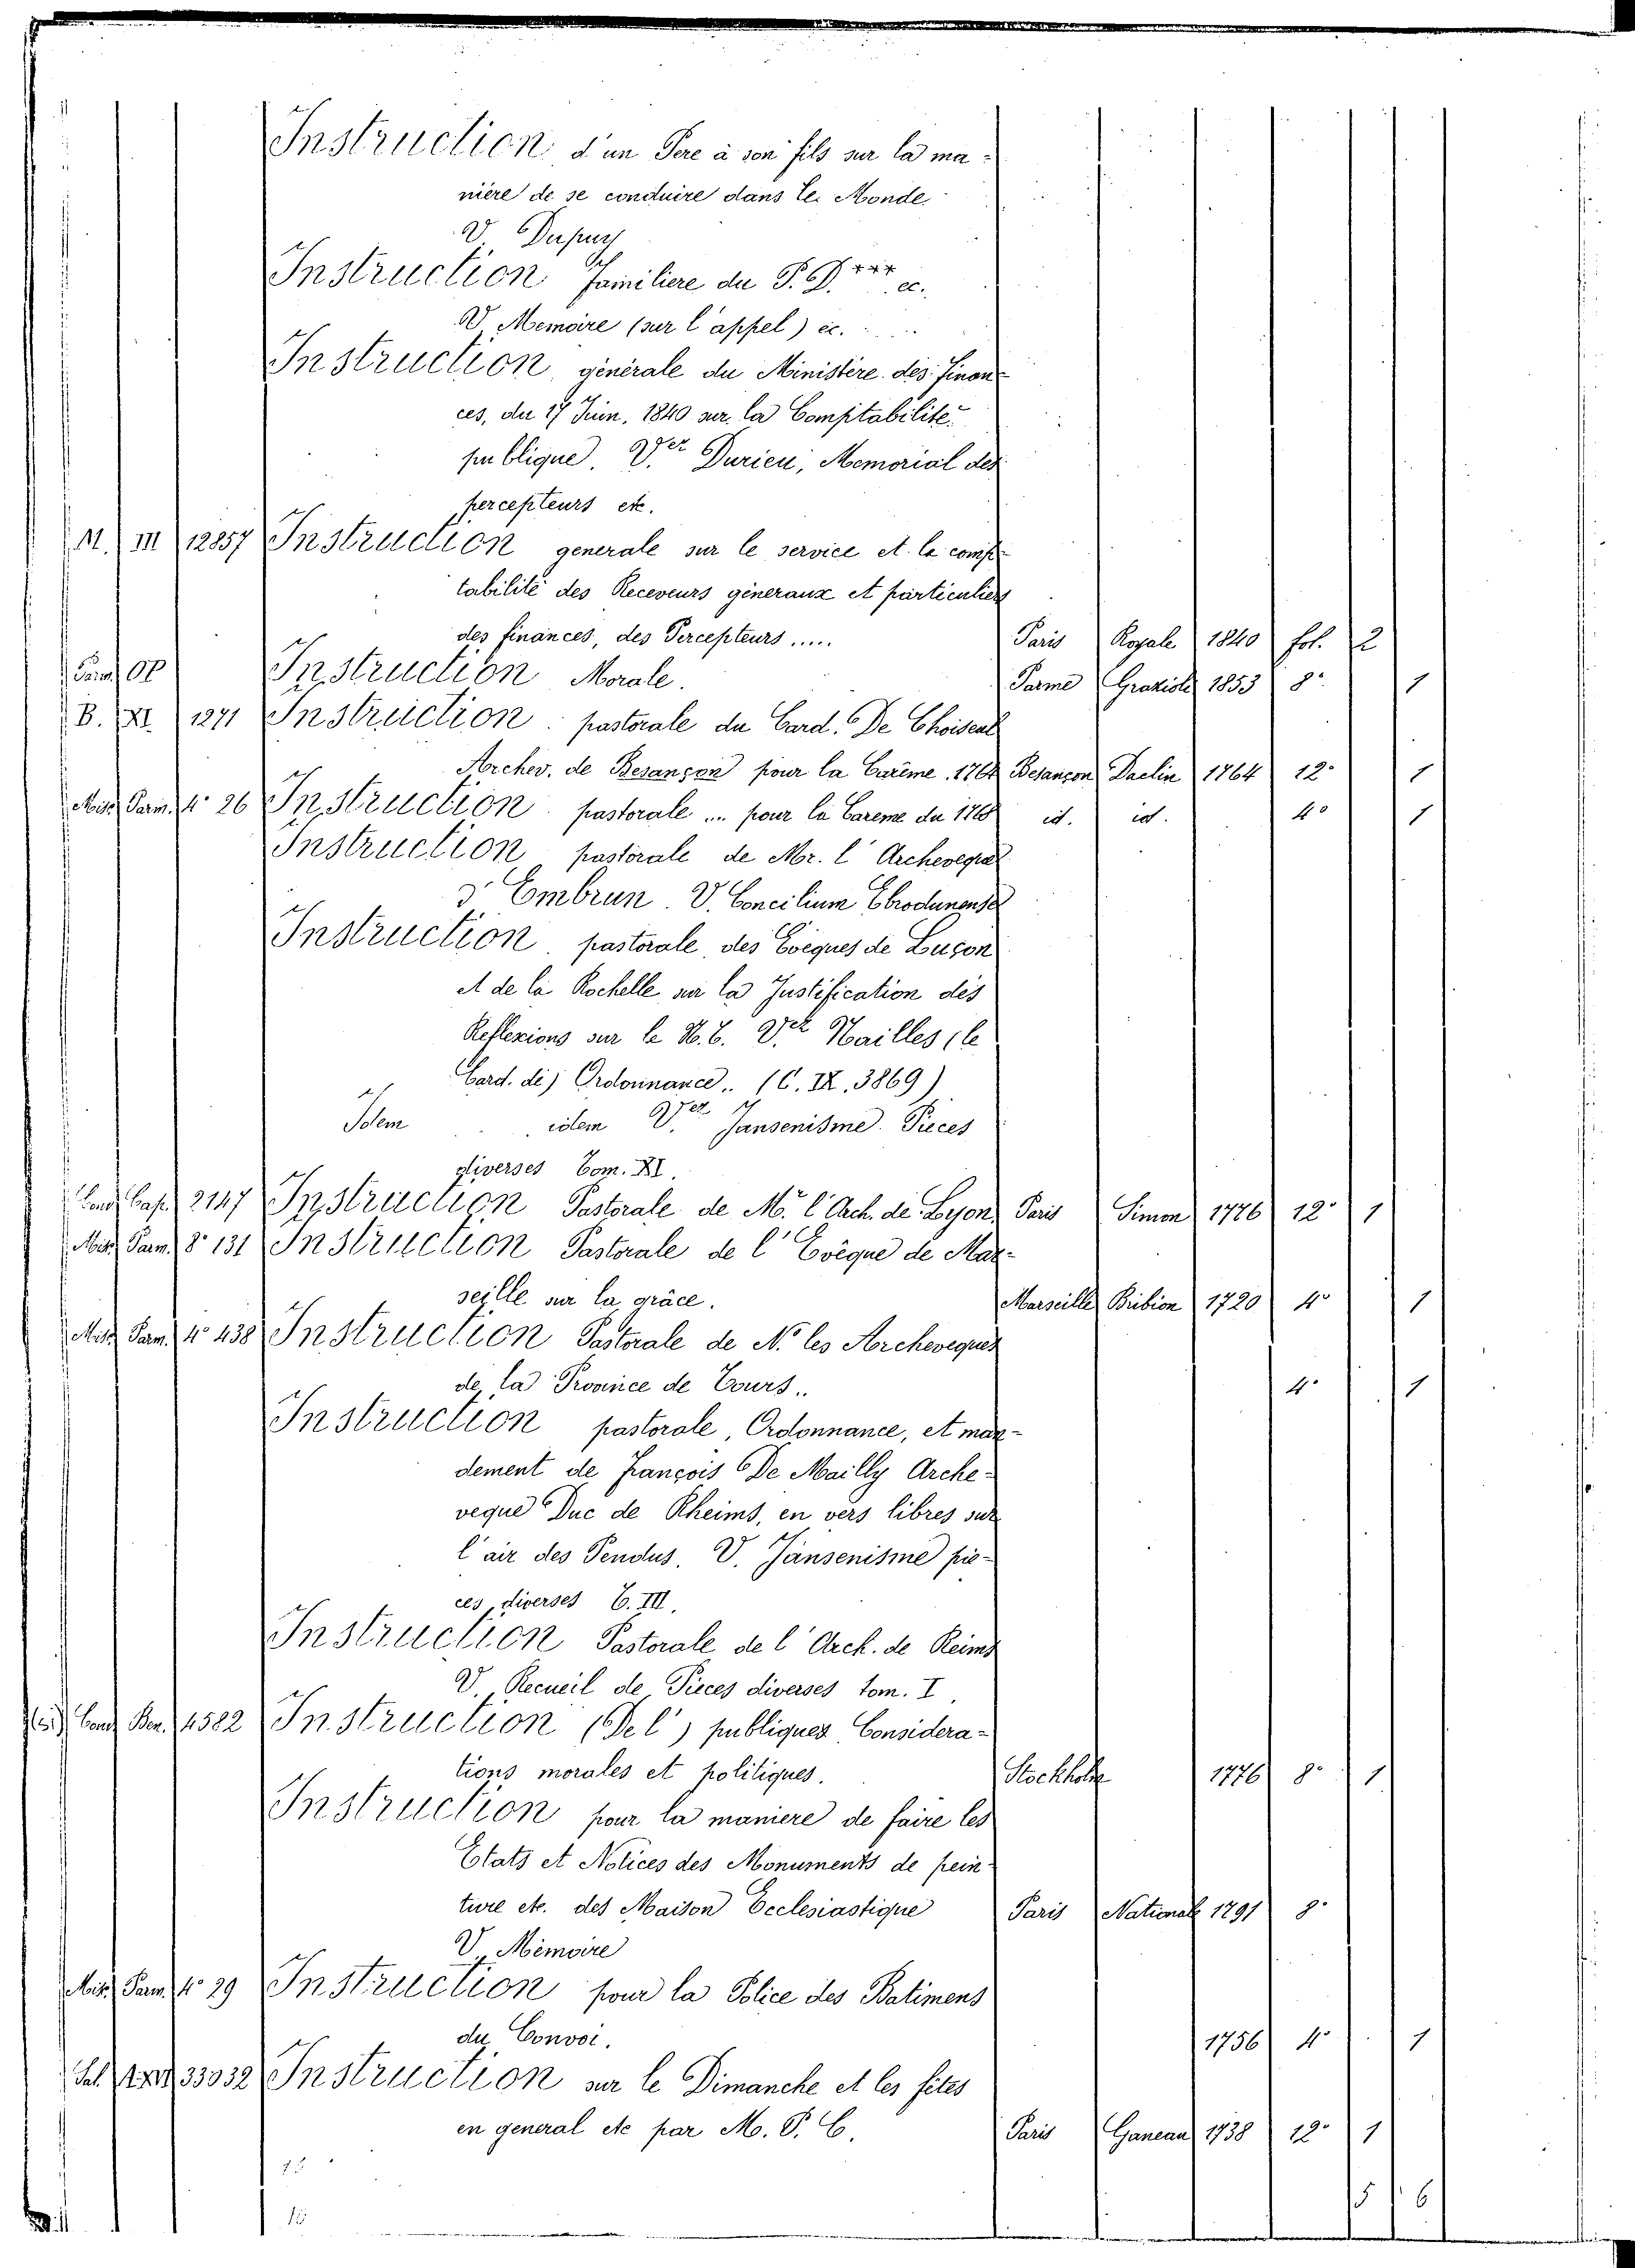 Instruction d'un Pere à son fils sur la ma-
nière de se conduire dans le Monde
V. Dupuy
Instruction familiere du P. D. *** ec.
V. Memoire (sur l'appel) ec.
Instruction générale du Ministère des finan-
ces, du 17 Juin, 1840 sur la Comptabilité
publique. V.er Durieu, Memorial des
percepteurs etc.
M. III 12857 Instruction generale sur le service et la comp-
tabilité des Receveurs géneraux et particuliers
des finances, des Percepteurs ..... Paris Royale 1840 fol. 2
Parm. OP Instruction Morale. Parme Grazioli 1853 8° 1
B. XI. 1271 Instruction pastorale du Card. De Choiseul
Archev. de Besançon pour la Carême 1764 Besançon Daclin 1764 12° 1
Misc. Parm. 4° 26 Instruction pastorale ... pour la Careme du 1768 id. id. 4° 1
Instruction pastorale de Mr. l'Archeveque
d'Embrun. V. Concilium Ebrodunense
Instruction pastorale des Evêques de Luçon
et de la Rochelle sur la Justification des
Reflexions sur le N. T. V.er Noailles (le
Card. de) Ordonnance.. (C. IX. 3869)
Idem idem V.er Jansenisme Pieces
diverses Tom. XI.
Cond. Cap. 2147 Instruction Pastorale de Mr. l'Arch. de Lyon Paris Simon 1776 12° 1
Misc. Parm. 8° 131 Instruction Pastorale de l'Evêque de Mar-
seille sur la grâce. Marseille Brebion 1720 4° 1
Misc. Parm. 4° 438 Instruction Pastorale de N. les Archeveques
de la Province de Tours.. 4° 1
Instruction pastorale, Ordonnance, et man-
dement de François De Mailly Arche-
veque Duc de Rheims, en vers libres sur
l'air des Pendus. V. Jansenisme piè-
ces diverses T. III.
Instruction Pastorale de l'Arch. de Reims
V. Recueil de Pieces diverses tom. I
Cond. Ben. 4582 Instruction (De l') publique Considera-
tions morales et politiques. Stockholm 1776 8° 1
Instruction pour la maniere de faire les
Etats et Notices des Monuments de pein-
ture etc. des Maison Ecclesiastique Paris National 1791 8°
V. Mémoire
Misc. Parm. 4° 29 Instruction pour la Police des Batimens
du Convoi. 1756 4° 1
Sal. 33032 Instruction sur le Dimanche et les fêtes
en general etc par M. P. C. Paris Ganeau 1738 12° 1
15
15
5 6